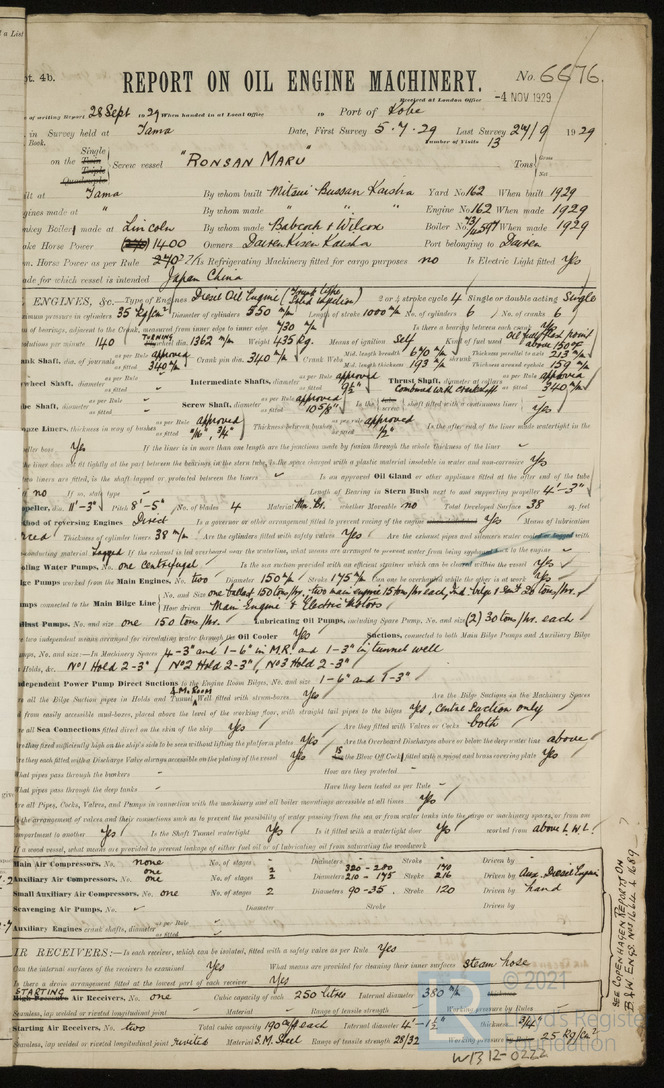 pt. 4b. REPORT ON OIL ENGINE MACHINERY. No. 6676.
Received at London Office -4 NOV 1929
of writing Report 28 Sept 1929 When handed in at Local Office 19 Port of Kobe
in Survey held at Tama Date, First Survey 5.7.29 Last Survey 24/9 1929
Book. Number of Visits 13
on the Single Twin Triple Quadruple Screw vessel "RONSAN MARU" Tons Gross Net
ilt at Tama By whom built Mitsui Bussan Kaisha Yard No. 162 When built 1929
gines made at " By whom made " " " Engine No. 162 When made 1929
nkey Boiler made at Lincoln By whom made Babcock & Wilcox Boiler No. When made 1929
ake Horse Power 1400 Owners Dairen Kisen Kaisha Port belonging to Dairen
m. Horse Power as per Rule 270 Is Refrigerating Machinery fitted for cargo purposes no Is Electric Light fitted Yes
ade for which vessel is intended Japan China
ENGINES, &c.—Type of Engines Diesel Oil Engine (Trunk type Solid Injection) 2 or 4 stroke cycle 4 Single or double acting Single
ximum pressure in cylinders 35 kg/cm² Diameter of cylinders 550 m/m Length of stroke 1000 m/m No. of cylinders 6 No. of cranks 6
n of bearings, adjacent to the Crank, measured from inner edge to inner edge 730 m/m Is there a bearing between each crank yes
olutions per minute 140 TURNING wheel dia. 1362 m/m Weight 435 kg. Means of ignition Self Kind of fuel used Oil fuel flash point above 150°F
ank Shaft, dia. of journals as per Rule approved as fitted 340 m/m Crank pin dia. 340 m/m Crank Webs Mid. length breadth 670 m/m Mid. length thickness 193 m/m shrunk Thickness parallel to axis 213 m/m Thickness around eyehole 159 m/m
wheel Shaft, diameter as per Rule as fitted Intermediate Shafts, diameter as per Rule approved as fitted 9½" Thrust Shaft, diameter at collars as per Rule approved as fitted 340 m/m Combined with crankshaft
be Shaft, diameter as per Rule as fitted Screw Shaft, diameter as per Rule approved as fitted 10 5/8" Is the screw shaft fitted with a continuous liner Yes
onze Liners, thickness in way of bushes as per Rule approved as fitted 11/16", 3/4" Thickness between bushes as per rule approved as fitted 1/2" Is the after end of the liner made watertight in the
peller boss Yes If the liner is in more than one length are the joints made by fusion through the whole thickness of the liner
the liner does not fit tightly at the part between the bearings in the stern tube, is the space charged with a plastic material insoluble in water and non-corrosive Yes
two liners are fitted, is the shaft lapped or protected between the liners Is an approved Oil Gland or other appliance fitted at the after end of the tube
ft no If so, state type Length of Bearing in Stern Bush next to and supporting propeller 4'-3"
opeller, dia. 11'-3" Pitch 8'-5" No. of blades 4 Material Mn. Br. whether Moveable no Total Developed Surface 38 sq. feet
thod of reversing Engines Direct Is a governor or other arrangement fitted to prevent racing of the engine Yes Means of lubrication
rced Thickness of cylinder liners 38 m/m Are the cylinders fitted with safety valves Yes Are the exhaust pipes and silencers water cooled or lagged with
conducting material Lagged If the exhaust is led overboard near the waterline, what means are arranged to prevent water from being syphoned back to the engine
oling Water Pumps, No. one centrifugal Is the sea suction provided with an efficient strainer which can be cleared within the vessel yes
lge Pumps worked from the Main Engines, No. two Diameter 150 m/m Stroke 175 m/m Can one be overhauled while the other is at work Yes
mps connected to the Main Bilge Line No. and Size one ballast 150 tons/hr. two main engine 15 tons/hr each, Ind. bilge & Sant. 20 tons/hr.
How driven Main Engine & Electric Motors
llast Pumps, No. and size one 150 tons/hr. Lubricating Oil Pumps, including Spare Pump, No. and size (2) 30 tons/hr. each
e two independent means arranged for circulating water through the Oil Cooler Yes Suctions, connected to both Main Bilge Pumps and Auxiliary Bilge
mps, No. and size:—In Machinery Spaces 4-3" and 1-6" in M.R. and 1-3" in tunnel well
Holds, &c. No 1 Hold 2-3" No 2 Hold 2-3" No 3 Hold 2-3"
dependent Power Pump Direct Suctions to the Engine Room Bilges, No. and size 1-6" and 1-3"
e all the Bilge Suction pipes in Holds and Tunnel Well fitted with strum-boxes Yes Are the Bilge Suctions in the Machinery Spaces
from easily accessible mud-boxes, placed above the level of the working floor, with straight tail pipes to the bilges Yes, central suction only
e all Sea Connections fitted direct on the skin of the ship Yes Are they fitted with Valves or Cocks both
re they fixed sufficiently high on the ship's side to be seen without lifting the platform plates Yes Are the Overboard Discharges above or below the deep water line above
re they each fitted with a Discharge Valve always accessible on the plating of the vessel Yes Is the Blow Off Cock fitted with a spigot and brass covering plate Yes
hat pipes pass through the bunkers How are they protected
hat pipes pass through the deep tanks Have they been tested as per Rule
re all Pipes, Cocks, Valves, and Pumps in connection with the machinery and all boiler mountings accessible at all times Yes
the arrangement of valves and their connections such as to prevent the possibility of water passing from the sea or from water tanks into the cargo or machinery spaces, or from one
mpartment to another Yes Is the Shaft Tunnel watertight Yes Is it fitted with a watertight door yes worked from above L.W.L.
f a wood vessel, what means are provided to prevent leakage of either fuel oil or lubricating oil from saturating the woodwork
Main Air Compressors, No. none No. of stages - Diameters - Stroke - Driven by -
Auxiliary Air Compressors, No. one one No. of stages 2 2 Diameters 320-280 210-175 Stroke 170 216 Driven by Aux. Diesel Engine
Small Auxiliary Air Compressors, No. one No. of stages 2 Diameters 90-35. Stroke 120 Driven by hand
Scavenging Air Pumps, No. Diameter Stroke Driven by
Auxiliary Engines crank shafts, diameter as per Rule as fitted
IR RECEIVERS:—Is each receiver, which can be isolated, fitted with a safety valve as per Rule Yes
Can the internal surfaces of the receivers be examined Yes What means are provided for cleaning their inner surfaces steam hose
Is there a drain arrangement fitted at the lowest part of each receiver Yes
STARTING High Pressure Air Receivers, No. one Cubic capacity of each 250 litres Internal diameter 380 m/m thickness
Seamless, lap welded or riveted longitudinal joint Material Range of tensile strength Working pressure by Rules
Starting Air Receivers, No. two Total cubic capacity 190 each Internal diameter 4'-1½" thickness 3/4"
Seamless, lap welded or riveted longitudinal joint riveted Material S.M. Steel Range of tensile strength 28/32 Working pressure by Rules 25 kg/cm²
SEE COPENHAGEN REPORTS ON
B&W ENGS. Nos 1664 & 1689
© 2021
LR
Lloyd's Register
Foundation
WB12-0222